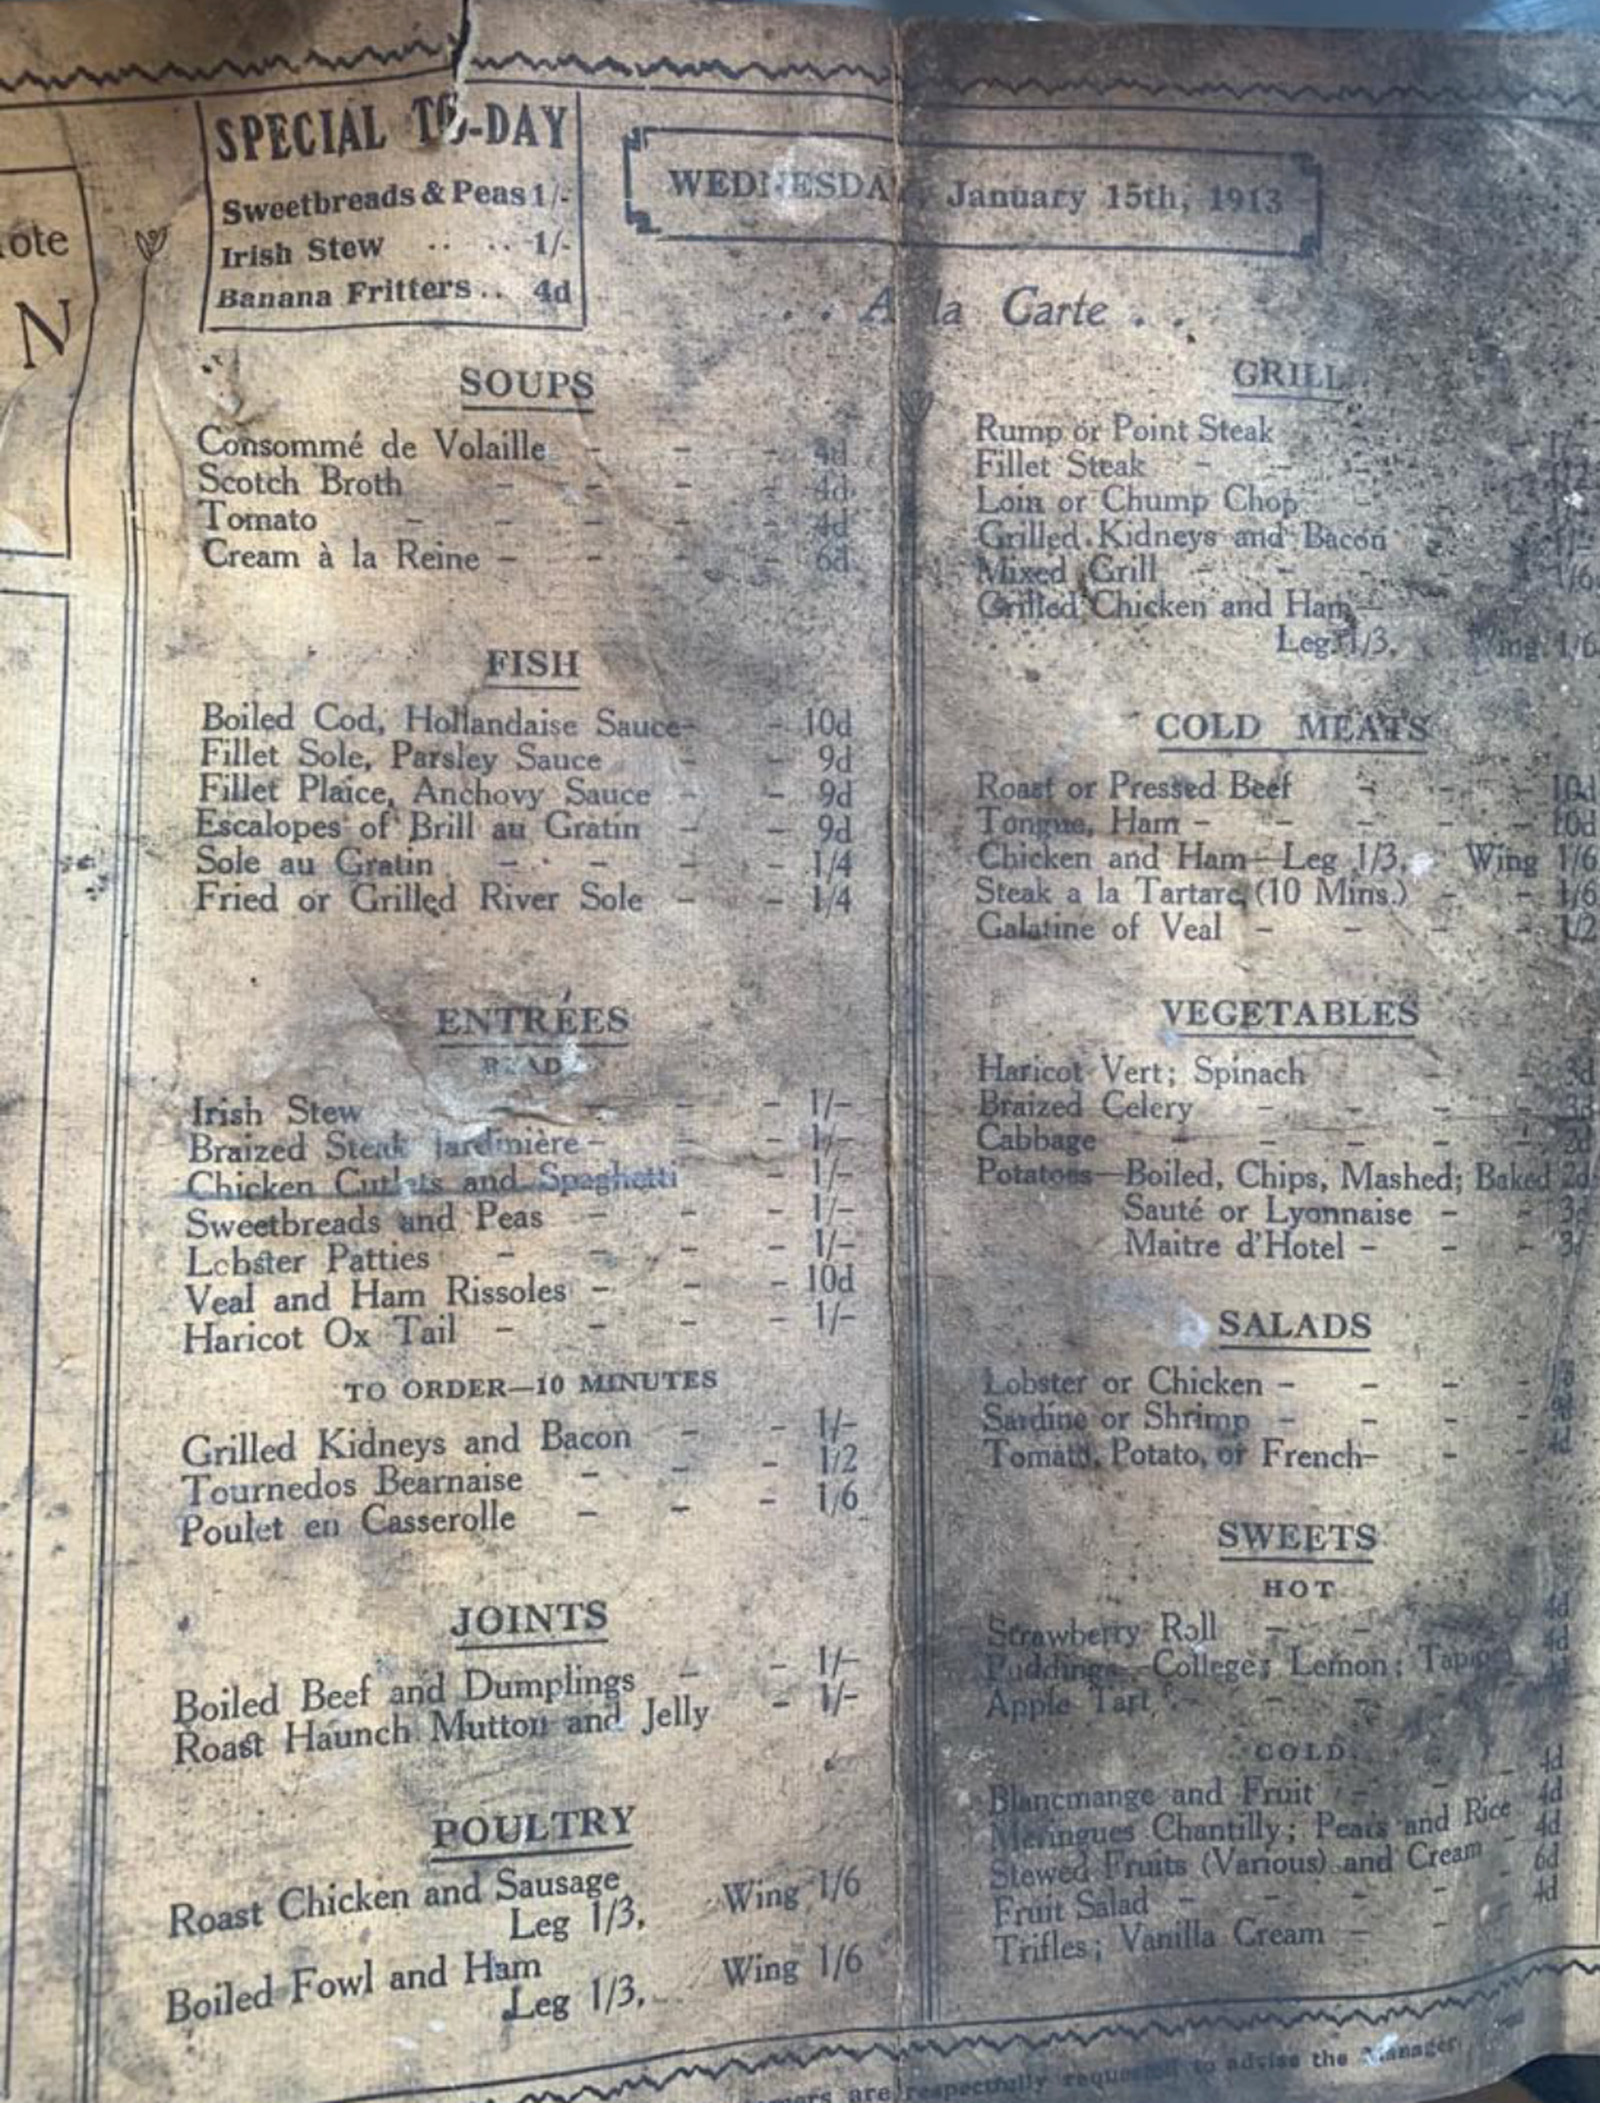 ote
N
SPECIAL TO-DAY
Sweetbreads & Peas 1/-
Irish Stew .. .. 1/-
Banana Fritters .. 4d
WEDNESDAY, January 15th, 1913
. . A la Carte . .
SOUPS
Consommé de Volaille - - - 4d
Scotch Broth - - - - 4d
Tomato - - - - - 4d
Cream à la Reine - - - - 6d
FISH
Boiled Cod, Hollandaise Sauce- - 10d
Fillet Sole, Parsley Sauce - - 9d
Fillet Plaice, Anchovy Sauce - - 9d
Escalopes of Brill au Gratin - - 9d
Sole au Gratin - - - - 1/4
Fried or Grilled River Sole - - 1/4
ENTRÉES
READY
Irish Stew - - - - 1/-
Braized Steak Jardinière - - - 1/-
Chicken Cutlets and Spaghetti - 1/-
Sweetbreads and Peas - - - 1/-
Lobster Patties - - - - 1/-
Veal and Ham Rissoles - - - 10d
Haricot Ox Tail - - - - 1/-
TO ORDER—10 MINUTES
Grilled Kidneys and Bacon - - 1/-
Tournedos Bearnaise - - - 1/2
Poulet en Casserolle - - - 1/6
JOINTS
Boiled Beef and Dumplings - - 1/-
Roast Haunch Mutton and Jelly - 1/-
POULTRY
Roast Chicken and Sausage
Leg 1/3, Wing 1/6
Boiled Fowl and Ham
Leg 1/3, Wing 1/6
GRILL
Rump or Point Steak
Fillet Steak - - -
Loin or Chump Chop -
Grilled Kidneys and Bacon
Mixed Grill - - 1/6
Grilled Chicken and Ham—
Leg 1/3, Wing 1/6
COLD MEATS
Roast or Pressed Beef - - - 10d
Tongue, Ham - - - - - 10d
Chicken and Ham—Leg 1/3, Wing 1/6
Steak a la Tartare (10 Mins.) - - 1/6
Galatine of Veal - - - - 1/2
VEGETABLES
Haricot Vert; Spinach - - 3d
Braized Celery - - - - 3d
Cabbage - - - - - 2d
Potatoes—Boiled, Chips, Mashed; Baked 2d
Sauté or Lyonnaise - - 3
Maitre d'Hotel - - - 3
SALADS
Lobster or Chicken - - - -
Sardine or Shrimp - - - -
Tomato, Potato, or French- - - 4d
SWEETS
HOT
Strawberry Roll - - 4d
Puddings—College; Lemon; 4d
Apple Tart - - - 4d
COLD
Blancmange and Fruit - - - 4d
Meringues Chantilly; Pears and Rice 4d
Stewed Fruits (Various) and Cream - 4d
Fruit Salad - - - - - 6d
Trifles; Vanilla Cream - - - 4d
omers are respectfully requested to advise the Manager,